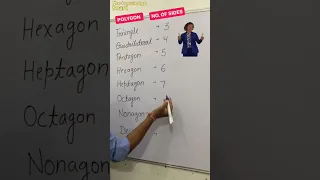 POLYGON NO. OF SIDES
Triangle - 3
Quadrilateral - 4
Pentagon - 5
Hexagon - 6
Heptagon - 7
Octagon -
Nonagon
Hexagon
Heptagon
Octagon
Nonagon